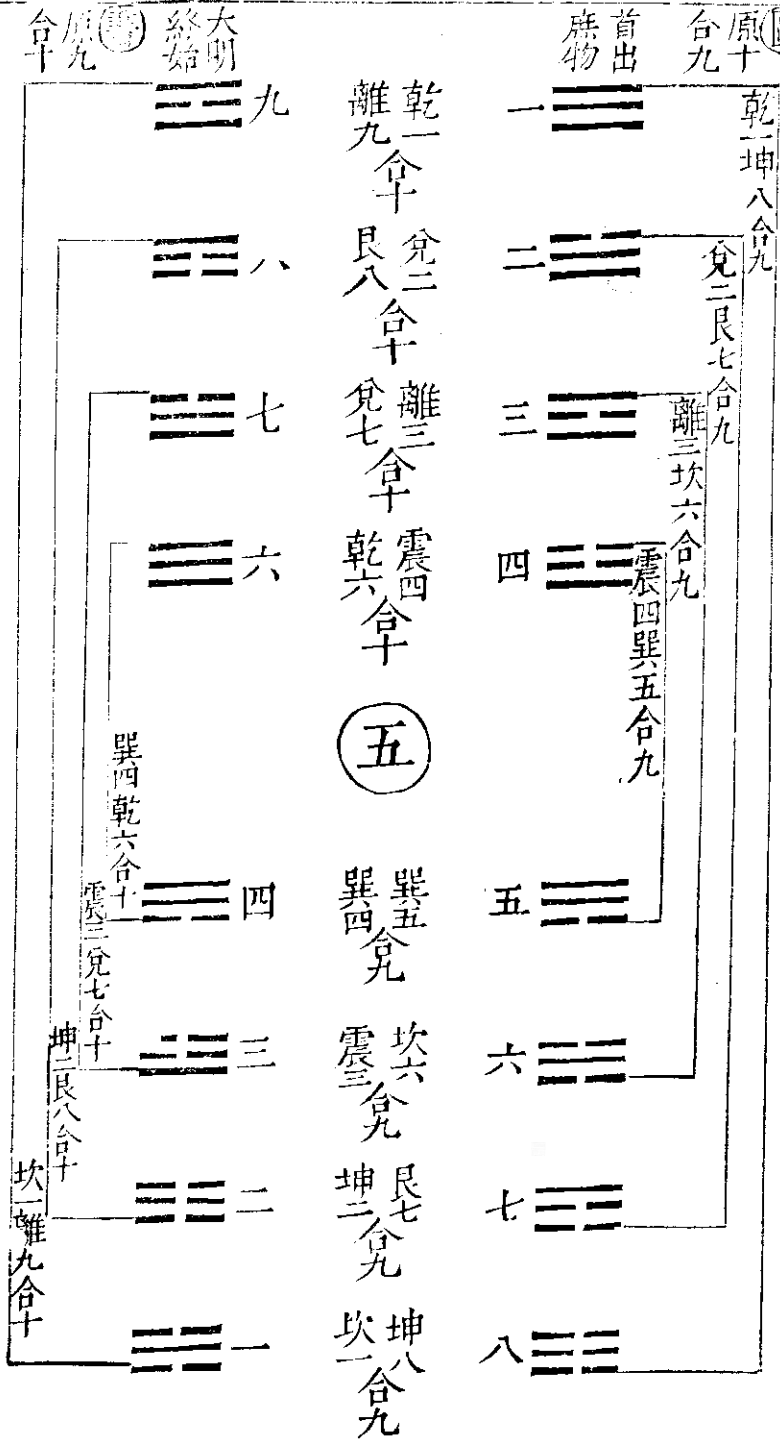 原十
合九
乾一坤八合九
兌二艮七合九
離三坎六合九
震四巽五合九
首出
庶物
一
二
三
四
五
六
七
八
乾一
離九
合十
兌二
艮八
合十
離三
兌七
合十
震四
乾六
合十
五
巽五
巽四
合九
坎六
震三
合九
艮七
坤二
合九
坤八
坎一
合九
九
八
七
六
四
三
二
一
大明
終始
巽四乾六合十
震三兌七合十
坤二艮八合十
坎一離九合十
原九
合十